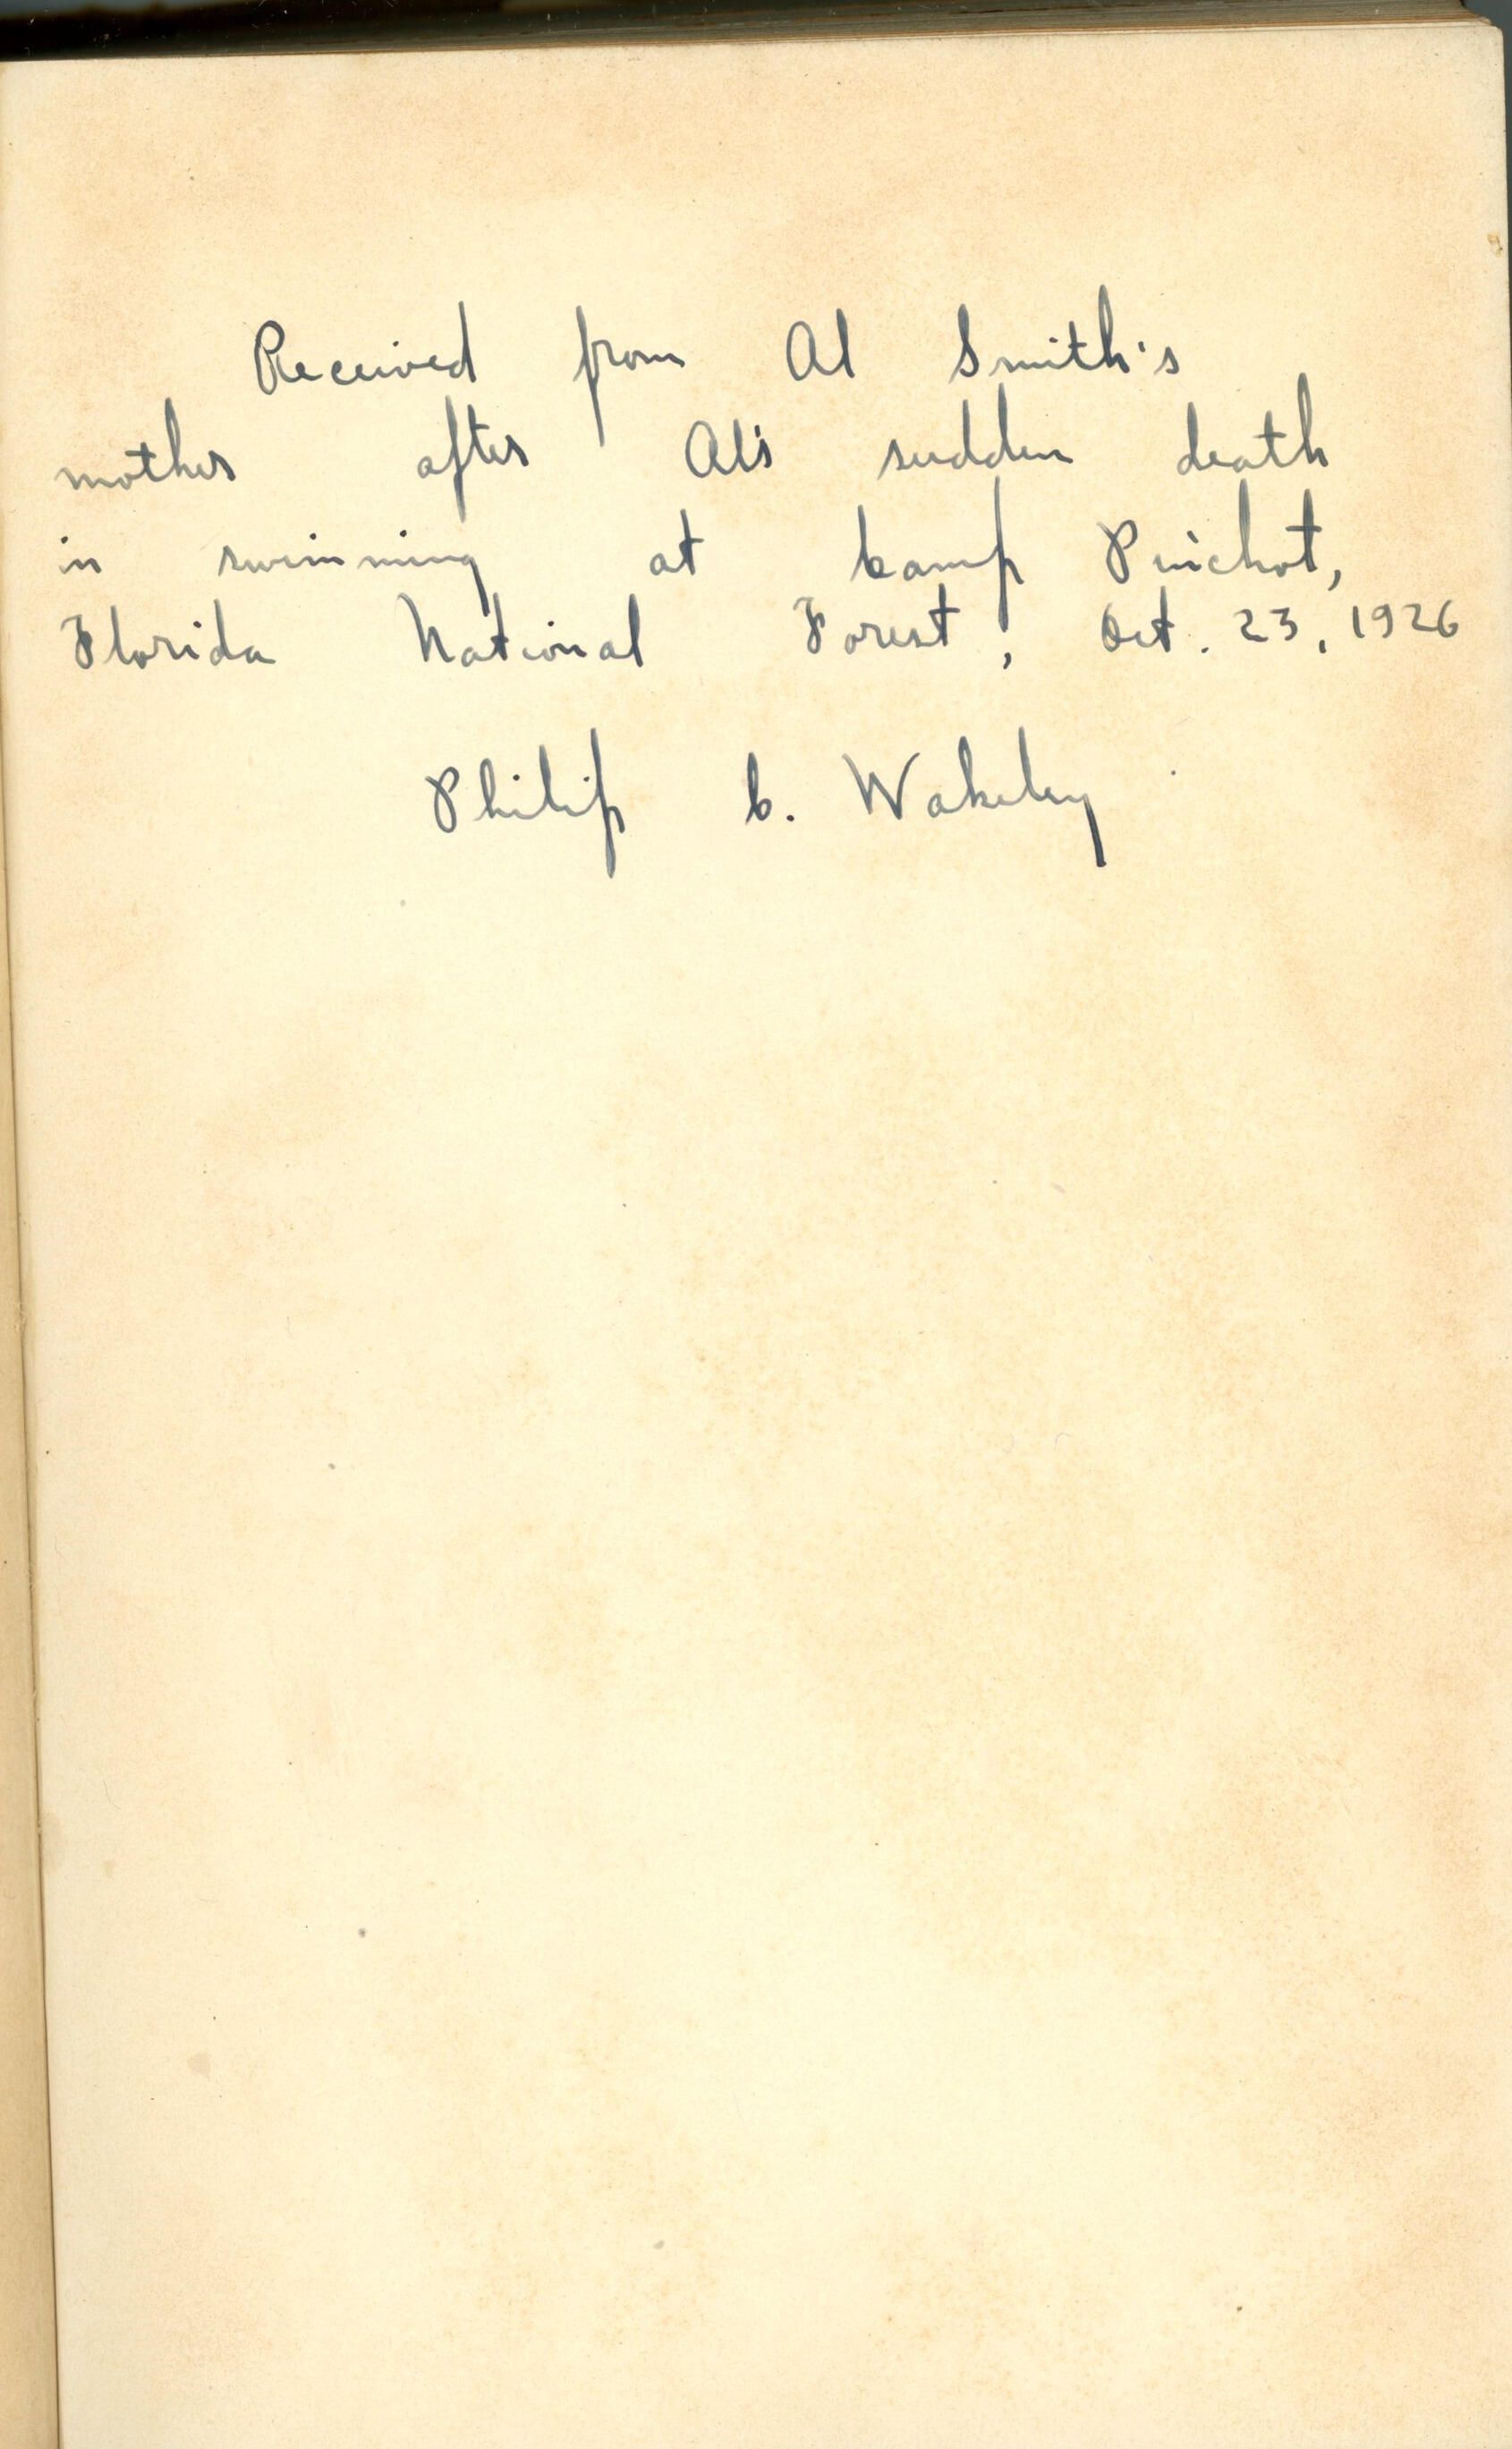 Received from Al Smith's
mother after Al's sudden death
in swimming at Camp Pinchot,
Florida National Forest, Oct. 23, 1926
Philip C. Wakeley